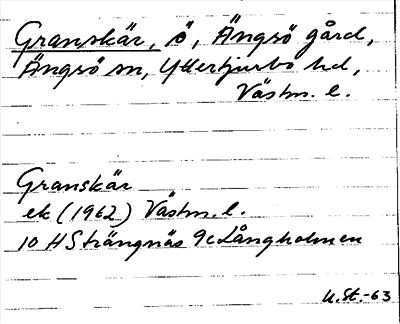 Granskär, ö, Ängsö gård,
Ängsö sn, Yttertjurbo hd,
Västm. l.
Granskär
ek (1962) Västm. l.
10 H Strängnäs 9c Långholmen
U.St.-63